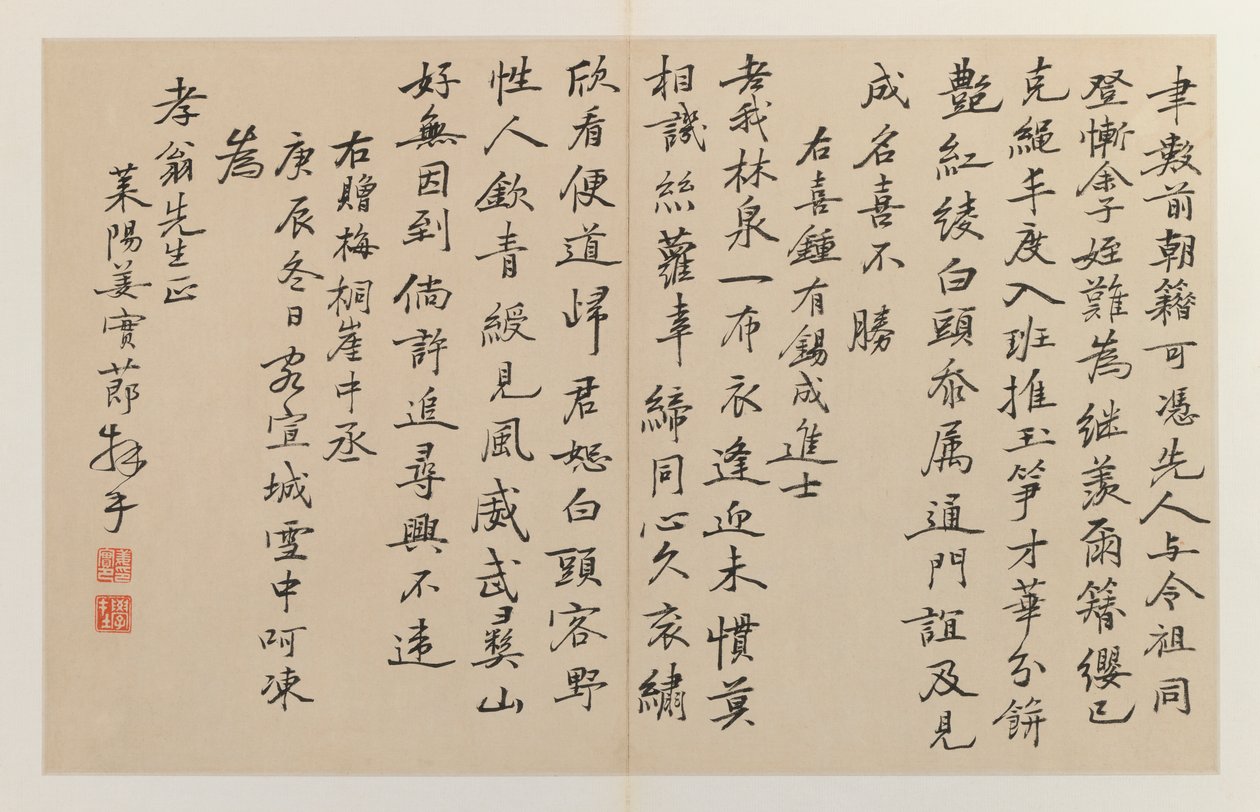 聿數前朝籍可憑先人与令祖同
登慚余子姪難為继羨爾簪纓已
克繩丰度入班推玉笋才華分餅
艷紅綾白頭忝属通門誼及見
成名喜不勝
右喜鍾有錫成進士
老我林泉一布衣逢迎未慣莫
相譏絲蘿幸締同心久袞繡
欣看便道歸君恕白頭容野
性人欽青綬見風威武彝山
好無因到倘許追尋興不違
右贈梅桐崖中丞
庚辰冬日客宣城雪中呵凍
為
孝翁先生正
萊陽姜實莭拜手
學在